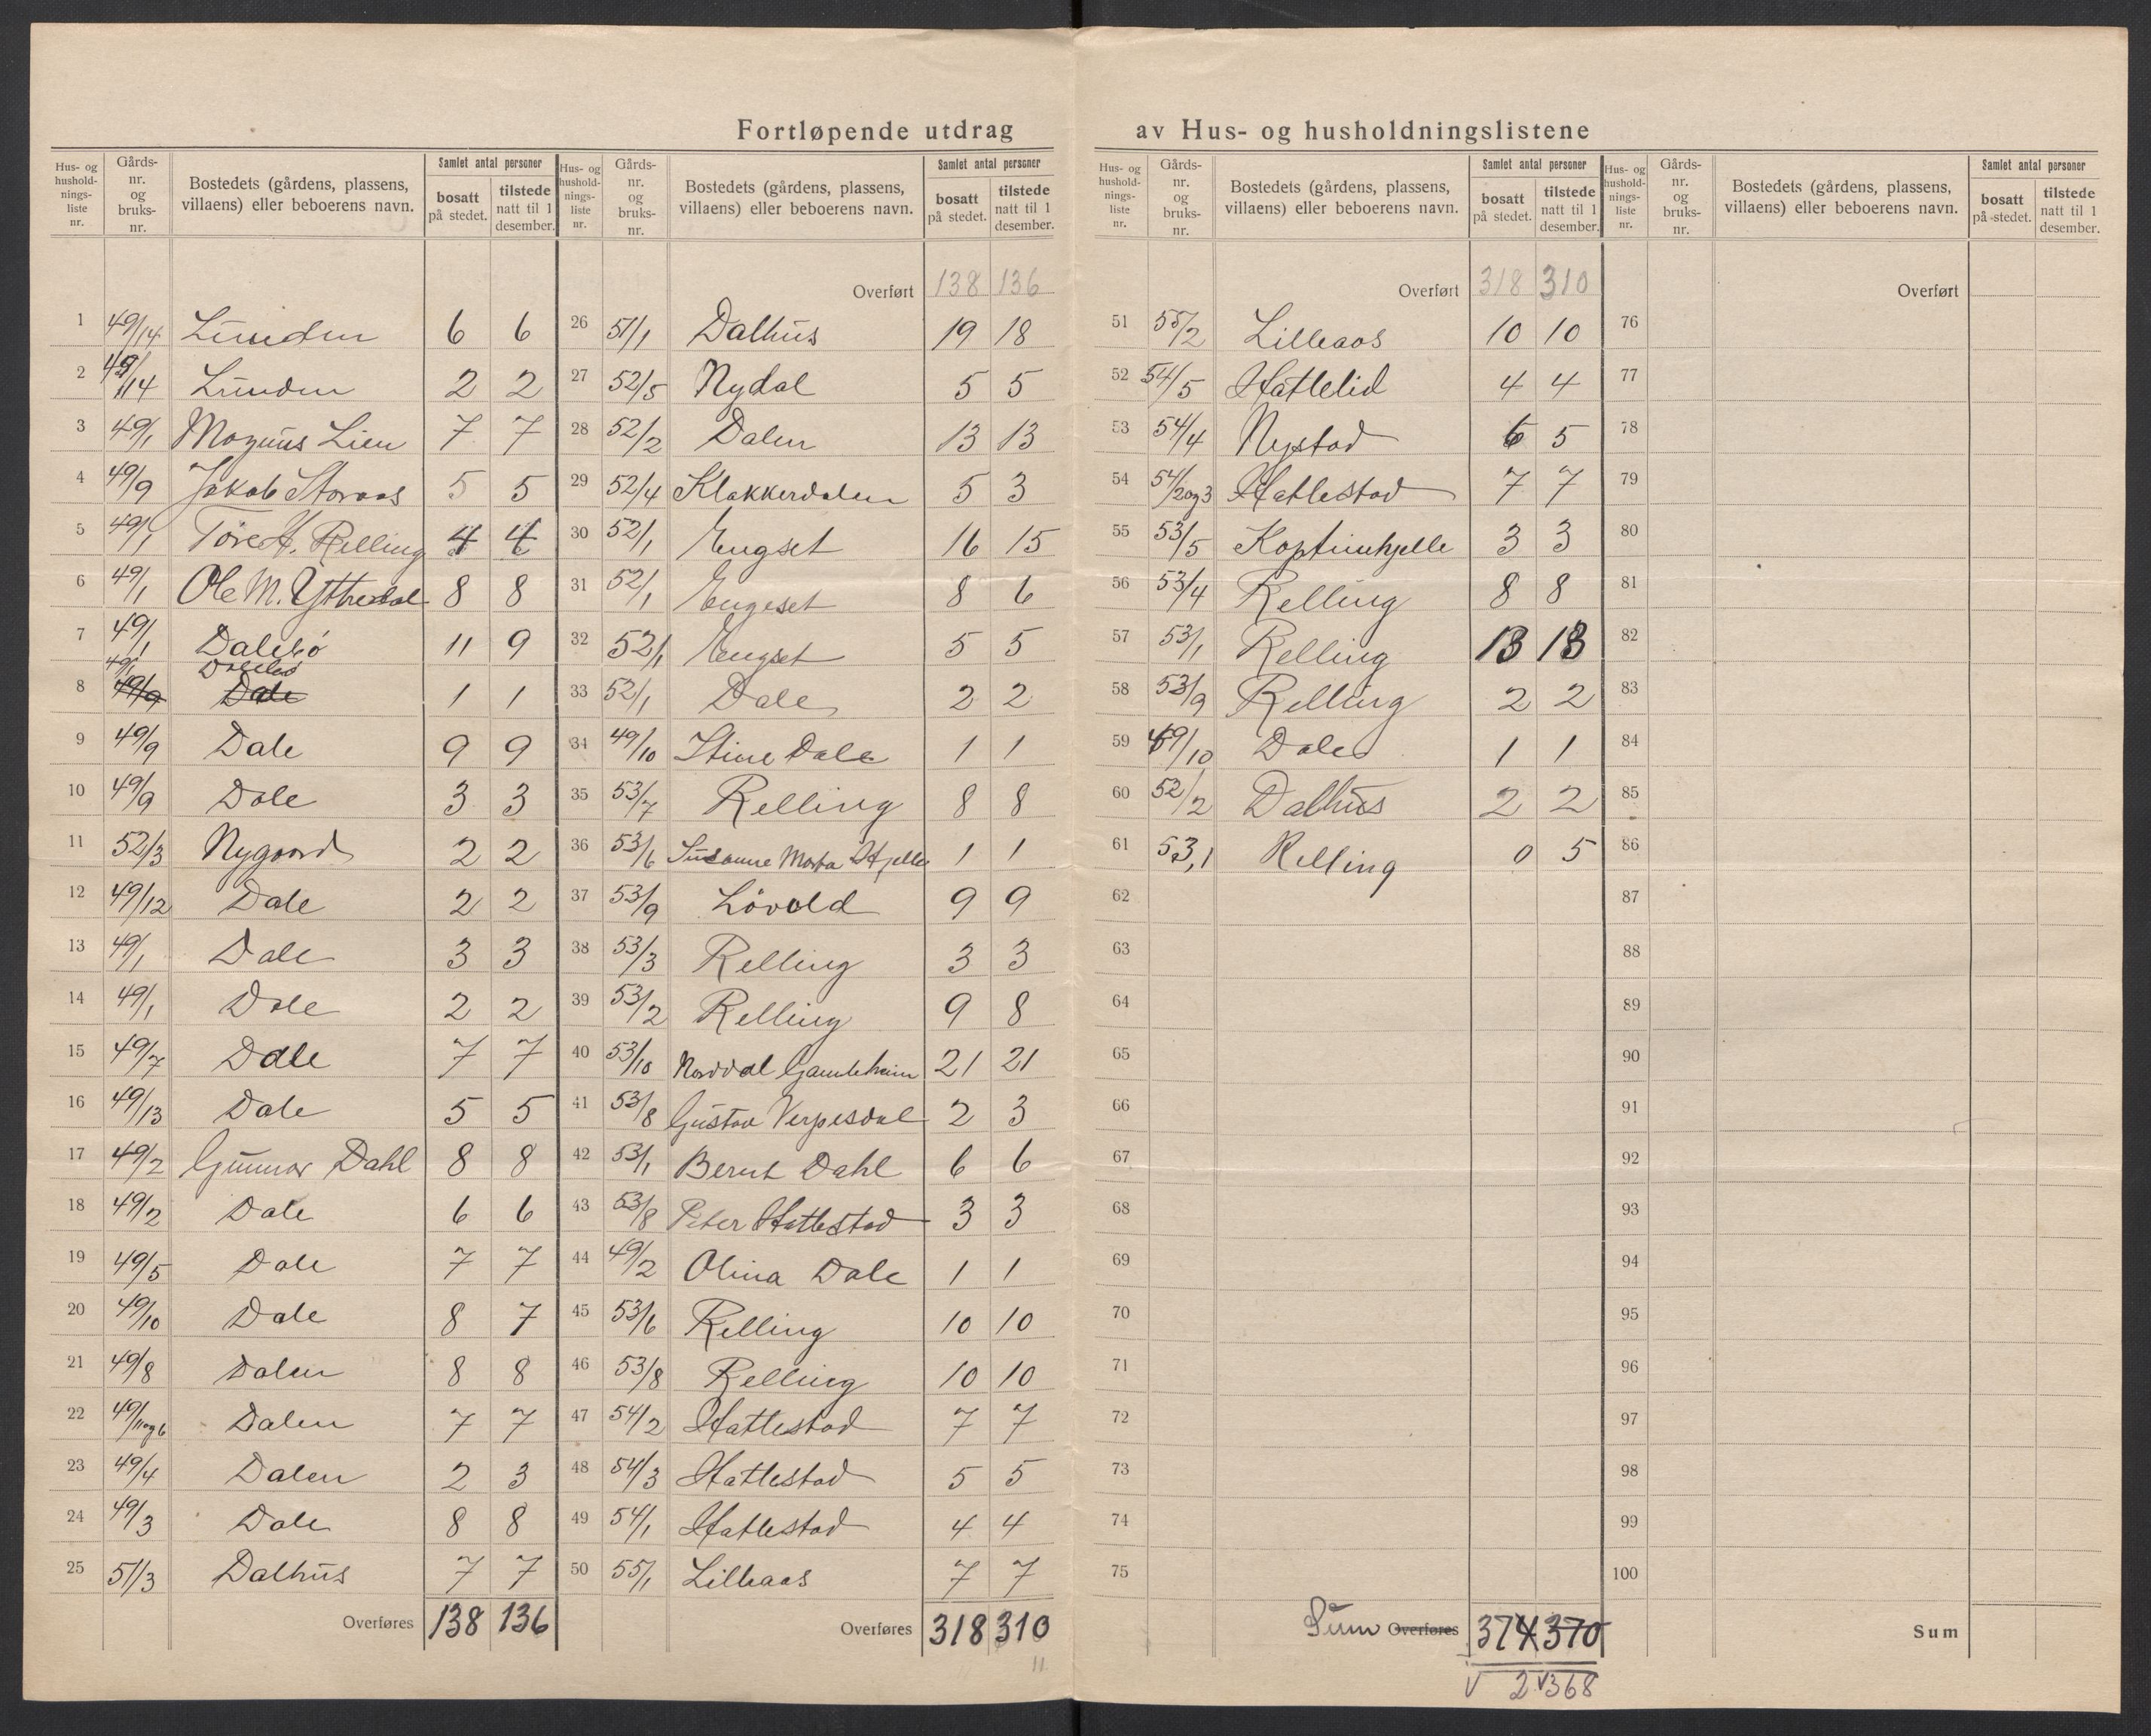 Fortløpende utdrag av Hus- og husholdningslistene
Hus- og husholdnings-liste nr. Gårds-nr. og bruks-nr. Bostedets (gårdens, plassens, villaens) eller beboerens navn. Samlet antal personer bosatt på stedet. tilstede natt til 1 desember.
1 49/14 Lunden 6 6
2 49/14 Lunden 2 2
3 49/1 Magnus Lien 7 7
4 49/9 Jakob Storaas 5 5
5 49/1 Tore A. Relling 4 4
6 49/1 Ole M. Ytthredal 8 8
7 49/1 Dalebø 11 9
49/1 Dalebø
8 49/9 Dale 1 1
9 49/9 Dale 9 9
10 49/9 Dale 3 3
11 52/3 Nygaard 2 2
12 49/12 Dale 2 2
13 49/1 Dale 3 3
14 49/1 Dale 2 2
15 49/7 Dale 7 7
16 49/13 Dale 5 5
17 49/2 Gunnar Dahl 8 8
18 49/2 Dale 6 6
19 49/5 Dale 7 7
20 49/10 Dale 8 7
21 49/8 Dalen 8 8
22 49/11og6 Dalen 7 7
23 49/4 Dalen 2 3
24 49/3 Dale 8 8
25 51/3 Dalhus 7 7
Overføres 138 136
Hus- og husholdnings-liste nr. Gårds-nr. og bruks-nr. Bostedets (gårdens, plassens, villaens) eller beboerens navn. Samlet antal personer bosatt på stedet. tilstede natt til 1 desember.
Overført 138 136
26 51/1 Dalhus 19 18
27 52/5 Nydal 5 5
28 52/2 Dalen 13 13
29 52/4 Klakkerdalen 5 3
30 52/1 Engset 16 15
31 52/1 Engeset 8 6
32 52/1 Engset 5 5
33 52/1 Dale 2 2
34 49/10 Stine Dale 1 1
35 53/7 Relling 8 8
36 53/6 Susanne Marta Hjelle 1 1
37 53/9 Løvold 9 9
38 53/3 Relling 3 3
39 53/2 Relling 9 8
40 53/10 Norddal Gamleheim 21 21
41 53/8 Gustav Verpesdal 2 3
42 53/1 Bernt Dahl 6 6
43 53/8 Peter Hattestad 3 3
44 49/2 Olina Dale 1 1
45 53/6 Relling 10 10
46 53/8 Relling 10 10
47 54/2 Hattestad 7 7
48 54/3 Hattestad 5 5
49 54/1 Hattestad 4 4
50 55/1 Lilleaas 7 7
Overføres 318 310
11
Hus- og hushold-nings-liste nr. Gårds-nr. og bruks-nr. Bostedets (gårdens, plassens, villaens) eller beboerens navn. Samlet antal personer bosatt på stedet. tilstede natt til 1 desember.
Overført 318 310
51 55/2 Lilleaas 10 10
52 54/5 Hattelid 4 4
53 54/4 Nystad 6 5
54 54/2og3 Hattestad 7 7
55 53/5 3 3
56 53/4 Relling 8 8
57 53/1 Relling 13 13
58 53/9 Relling 2 2
59 49/10 Dale 1 1
60 52/2 Dalhus 2 2
61 53,1 Relling 0 5
62
63
64
65
66
67
68
69
70
71
72
73
74
75
Sum Overføres 374 370
√ 2 √368
Hus- og hushold-nings-liste nr. Gårds-nr. og bruks-nr. Bostedets (gårdens, plassens, villaens) eller beboerens navn. Samlet antal personer bosatt på stedet. tilstede natt til 1 desember.
Overført
76
77
78
79
80
81
82
83
84
85
86
87
88
89
90
91
92
93
94
95
96
97
98
99
100
Sum